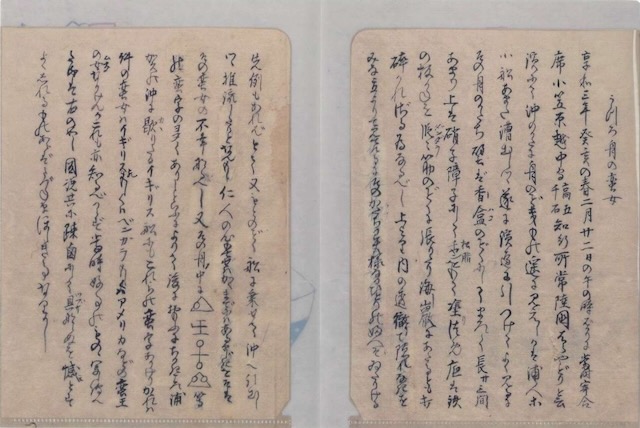 うつろ舟の蛮女
享和三年癸亥の春二月廿二日の午の時ばかりに当時寄合
席小笠原越中守高五千石知行所常陸国はらやどりといふ
浜にて沖のかたに舟の如きもの遥に見えしかば浦人等
小船あまた漕出しつゝ遂に浜辺に引つけてよく見るに
その舟のかたち譬ば香盒のごとくにしてまろく長三間
あまり上は硝子障子にしてチヤン松脂をもて塗つめ底は鉄
の板がねを段々筋のごとくに張たり海巌にあたるとも打
砕かれざる為なるべし上より内の透徹て隠れなきを
みな立よりて見てけるにそのかたち異様なるひとりの婦人ぞゐたりける
先例もあればとて又もとのごとく船に乗せて沖へ引出し
つゝ推流したりとなんもし仁人の心もてせばかくまでにはあるまじきをそは
その蛮女の不幸なるべし又その舟の中に△王〇十〇△等
の蛮字の多くありしといふによりて後におもふにちかきころ浦
賀の沖に歇りたるイギリス船にもこれらの蛮字ありけりかゝれば
件の蛮女はイギリスか もしくはベンガラ もしくはアメリカなどの蛮王
の女なりけんか これも亦知るべからず当時好事のものの写し伝へ
たるは右の如し図説共に疎鹵にして具ならぬを憾とす
よくしれるものあらばたづねまほしき事なりかし